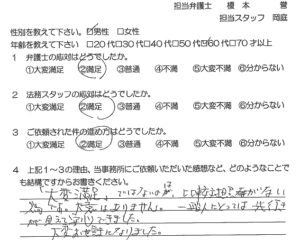 担当弁護士 榎本 誉
担当スタッフ 岡庭
性別を教えて下さい。 □男性 □女性
年齢を教えて下さい □20代□30代□40代□50代□60代□70才以上
1 弁護士の応対はどうでしたか。
①大変満足 ②満足 ③普通 ④不満 ⑤大変不満 ⑥分からない
2 法務スタッフの応対はどうでしたか。
①大変満足 ②満足 ③普通 ④不満 ⑤大変不満 ⑥分からない
3 ご依頼された件の進め方はどうでしたか。
①大変満足 ②満足 ③普通 ④不満 ⑤大変不満 ⑥分からない
4 上記1～3の理由、当事務所にご依頼いただいた感想など、どのようなことで
も結構ですからお書きください。
「大変満足」ではないのは、比較対象がない
為です。大意はありません。
大変お世話になりました。